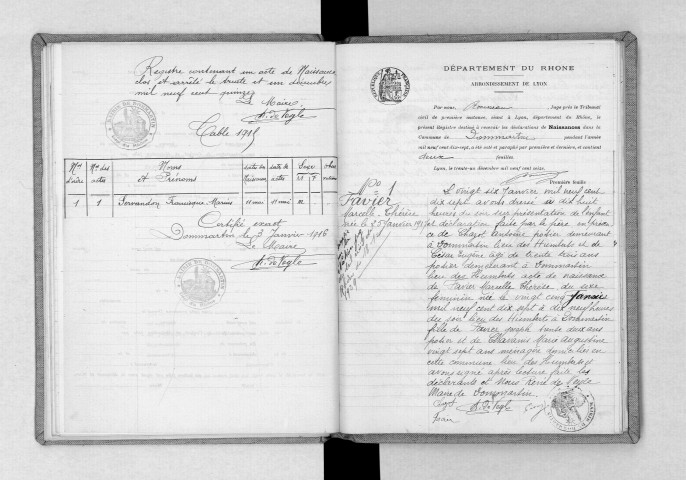 Registre contenant un acte de Naissance
clos et arrêté le trente et un décembre
mil neuf cent quinze
Le Maire
A. de l'Egle
Table 1915
Nos d'ordre
Nos des actes
Noms et Prénoms
Sexe
M F
1 1 Servandon Francisque Marius 11 mai 11 mai
Certifié exact
Dommartin le 3 Janvier 1916
Le Maire
DÉPARTEMENT DU RHONE
ARRONDISSEMENT DE LYON
Par nous, Juge près le Tribunal
civil de première instance, séant à Lyon, département du Rhône, le
présent Registre destiné à recevoir les déclarations de Naissances dans la
Commune de Dommartin pendant l'année
mil neuf cent dix-sept, a été coté et paraphé par première et dernière, et contient
deux feuilles
Lyon, le trente-un décembre mil neuf cent seize.
Première feuille
No 1
Favier
Marcelle-Thérèse
née le 25 Janvier 1917
Le vingt six Janvier mil neuf cent
dix sept avons dressé à dix huit
heures du soir sur présentation de l'enfant
et déclaration faite par le père en présen
ce de Chazot Antoine potier demeurant
à Dommartin lieu des Humberts et de
César Eugène âgé de trente trois ans
potier demeurant à Dommartin
lieu des Humberts acte de naissance
de Favier Marcelle Thérèse du sexe
féminin née le vingt cinq Janvier
mil neuf cent dix sept à dix neuf heures
du soir lieu des Humberts à Dommartin
fille de Favier Joseph trente deux ans
potier et de Chavanis Marie Augustine
vingt sept ans ménagère domiciliés en
cette commune lieu des Humberts et
avons signé après lecture faite les
déclarants et Nous René de l'Egle
Maire de Dommartin.